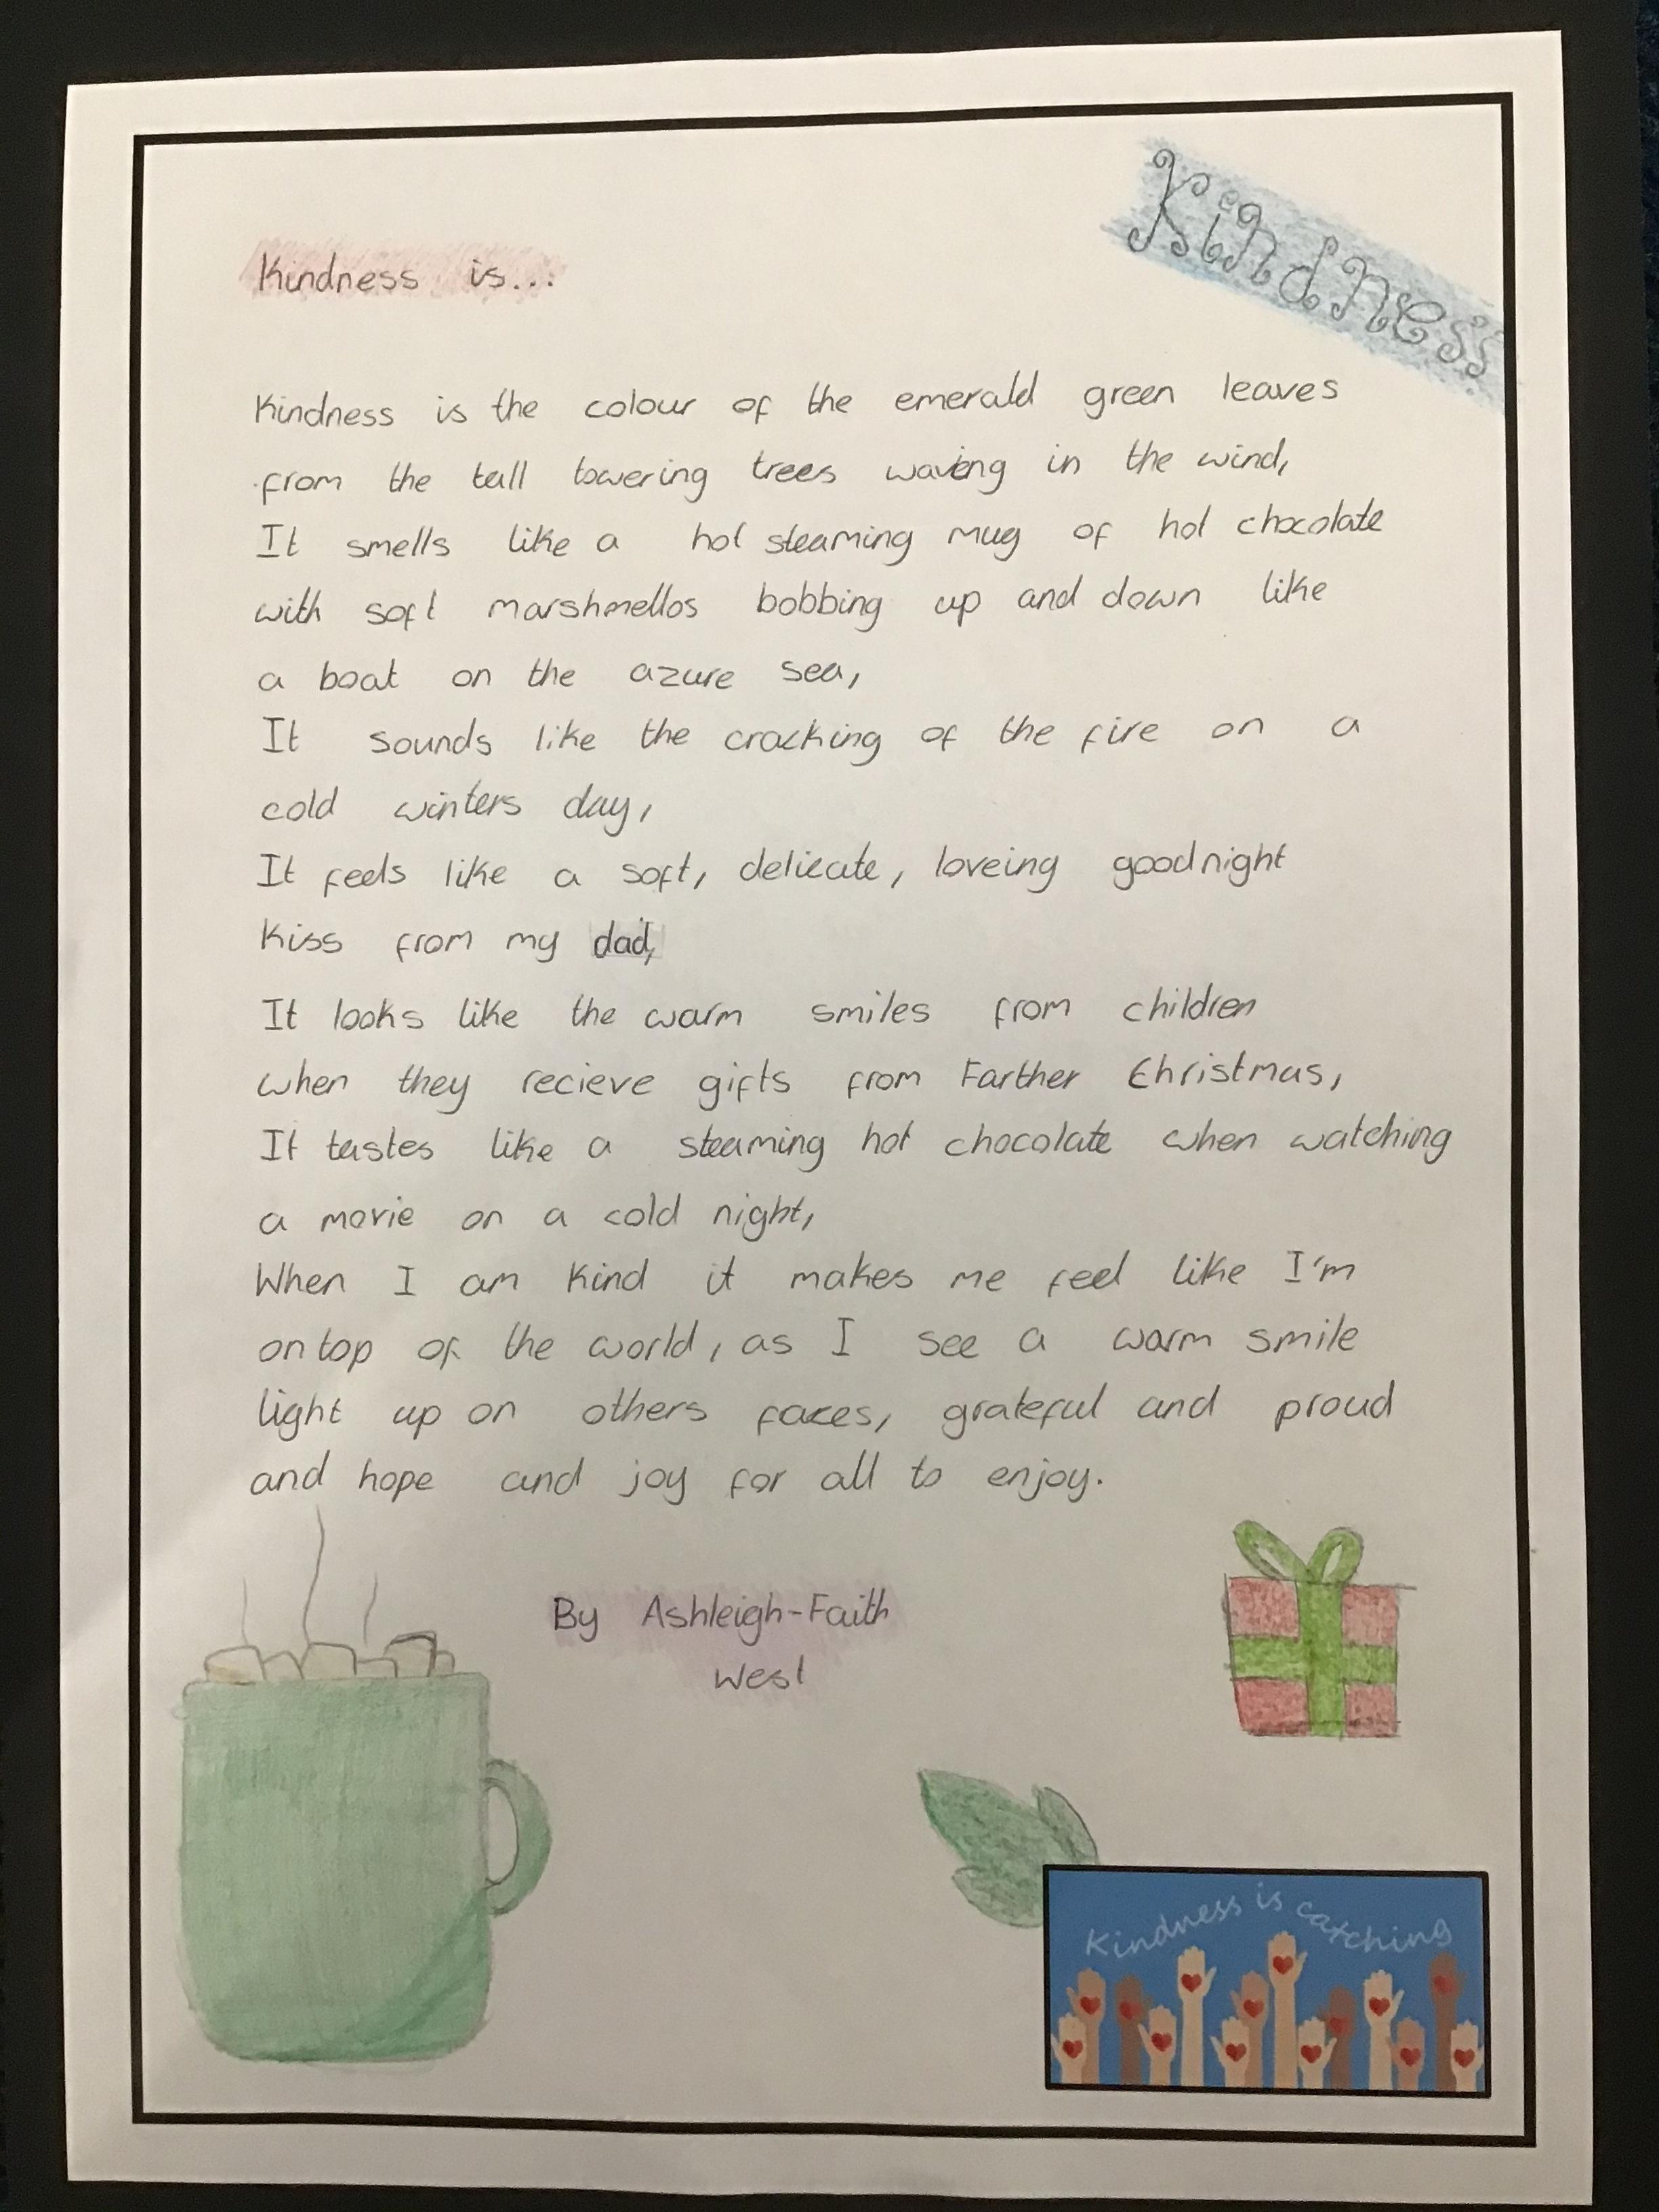 Kindness
Kindness is...
Kindness is the colour of the emerald green leaves
from the tall towering trees waving in the wind,
It smells like a hot steaming mug of hot chocolate
with soft marshmellos bobbing up and down like
a boat on the azure sea,
It sounds like the cracking of the fire on a
cold winters day,
It feels like a soft, delicate, loveing goodnight
kiss from my dad,
It looks like the warm smiles from children
when they recieve gifts from Farther Christmas,
It tastes like a steaming hot chocolate when watching
a movie on a cold night,
When I am kind it makes me feel like I'm
on top of the world, as I see a warm smile
light up on others faces, grateful and proud
and hope and joy for all to enjoy.
By Ashleigh-Faith
West
Kindness is catching